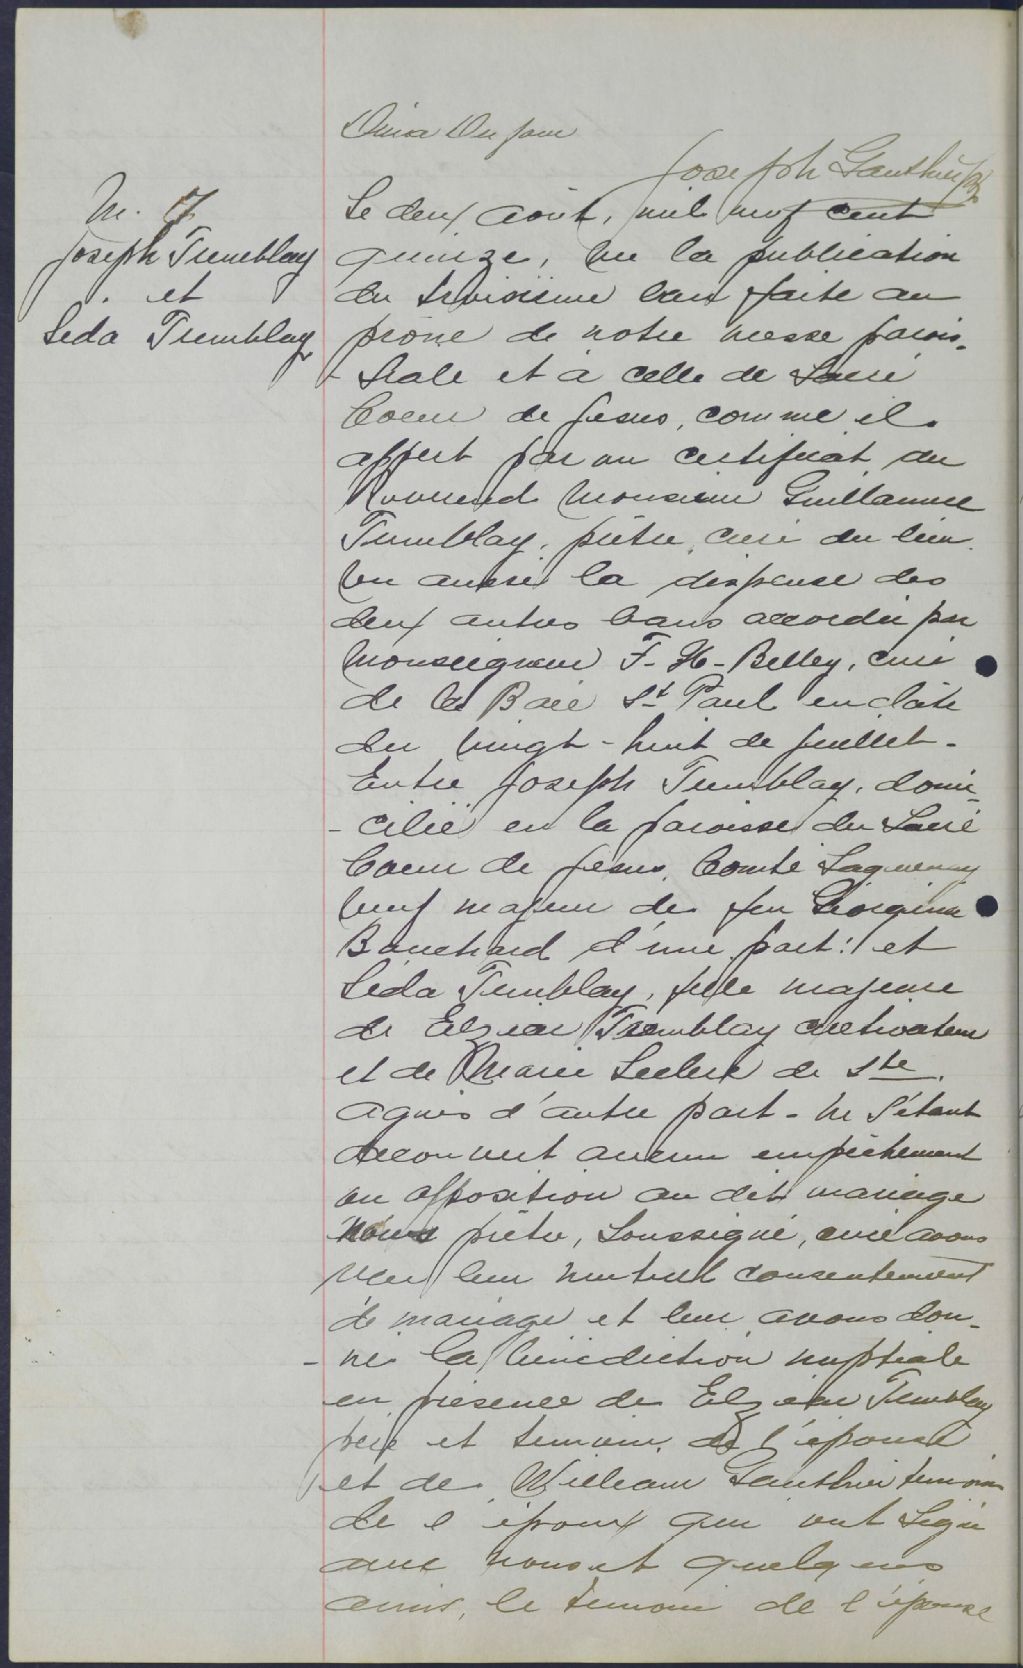 Dina Dufour
Joseph Gauthier ptr
M. 7
Joseph Tremblay
et
Léda Tremblay
Le deux août, mil neuf cent
quinze, vu la publication
du troisième ban faite au
prône de notre messe parois-
-siale et à celle de Sacré
Coeur de Jésus, comme il
appert par un certificat du
Révérend Monsieur Guillaume
Tremblay, prêtre, curé du lieu.
Vu aussi la dispense des
deux autres bans accordée par
Monseigneur F-H-Belley, curé
de la Baie St Paul en date
du vingt-huit de juillet-
Entre Joseph Tremblay, domi-
-cilié en la paroisse du Sacré
Coeur de Jésus, Comté Saguenay
veuf majeur de feu Géorgina
Bouchard d'une part: et
Léda Tremblay, fille majeure
de Elzéar Tremblay cultivateur
et de Marie Leclerc de Ste
Agnès d'autre part- Ne s'étant
découvert aucun empêchement
ou opposition au dit mariage
Nous prêtre, soussigné, curé avons
reçu leur mutuel consentement
de mariage et leur avons don-
-né la bénédiction nuptiale
en présence de Elzéar Tremblay
père et témoin de l'épouse
et de William Gauthier témoin
de l'époux qui ont signé
avec nous et quelques
amis, le témoin de l'épouse